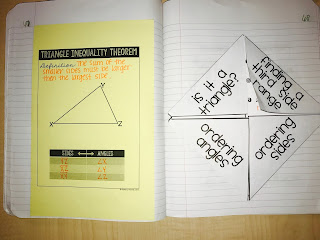 TRIANGLE INEQUALITY THEOREM
Definition: The sum of the
smaller sides must be larger
then the largest side.
Y
X
Z
SIDES ANGLES
is it a
triangle?
finding a
third side
range
ordering
angles
ordering
sides